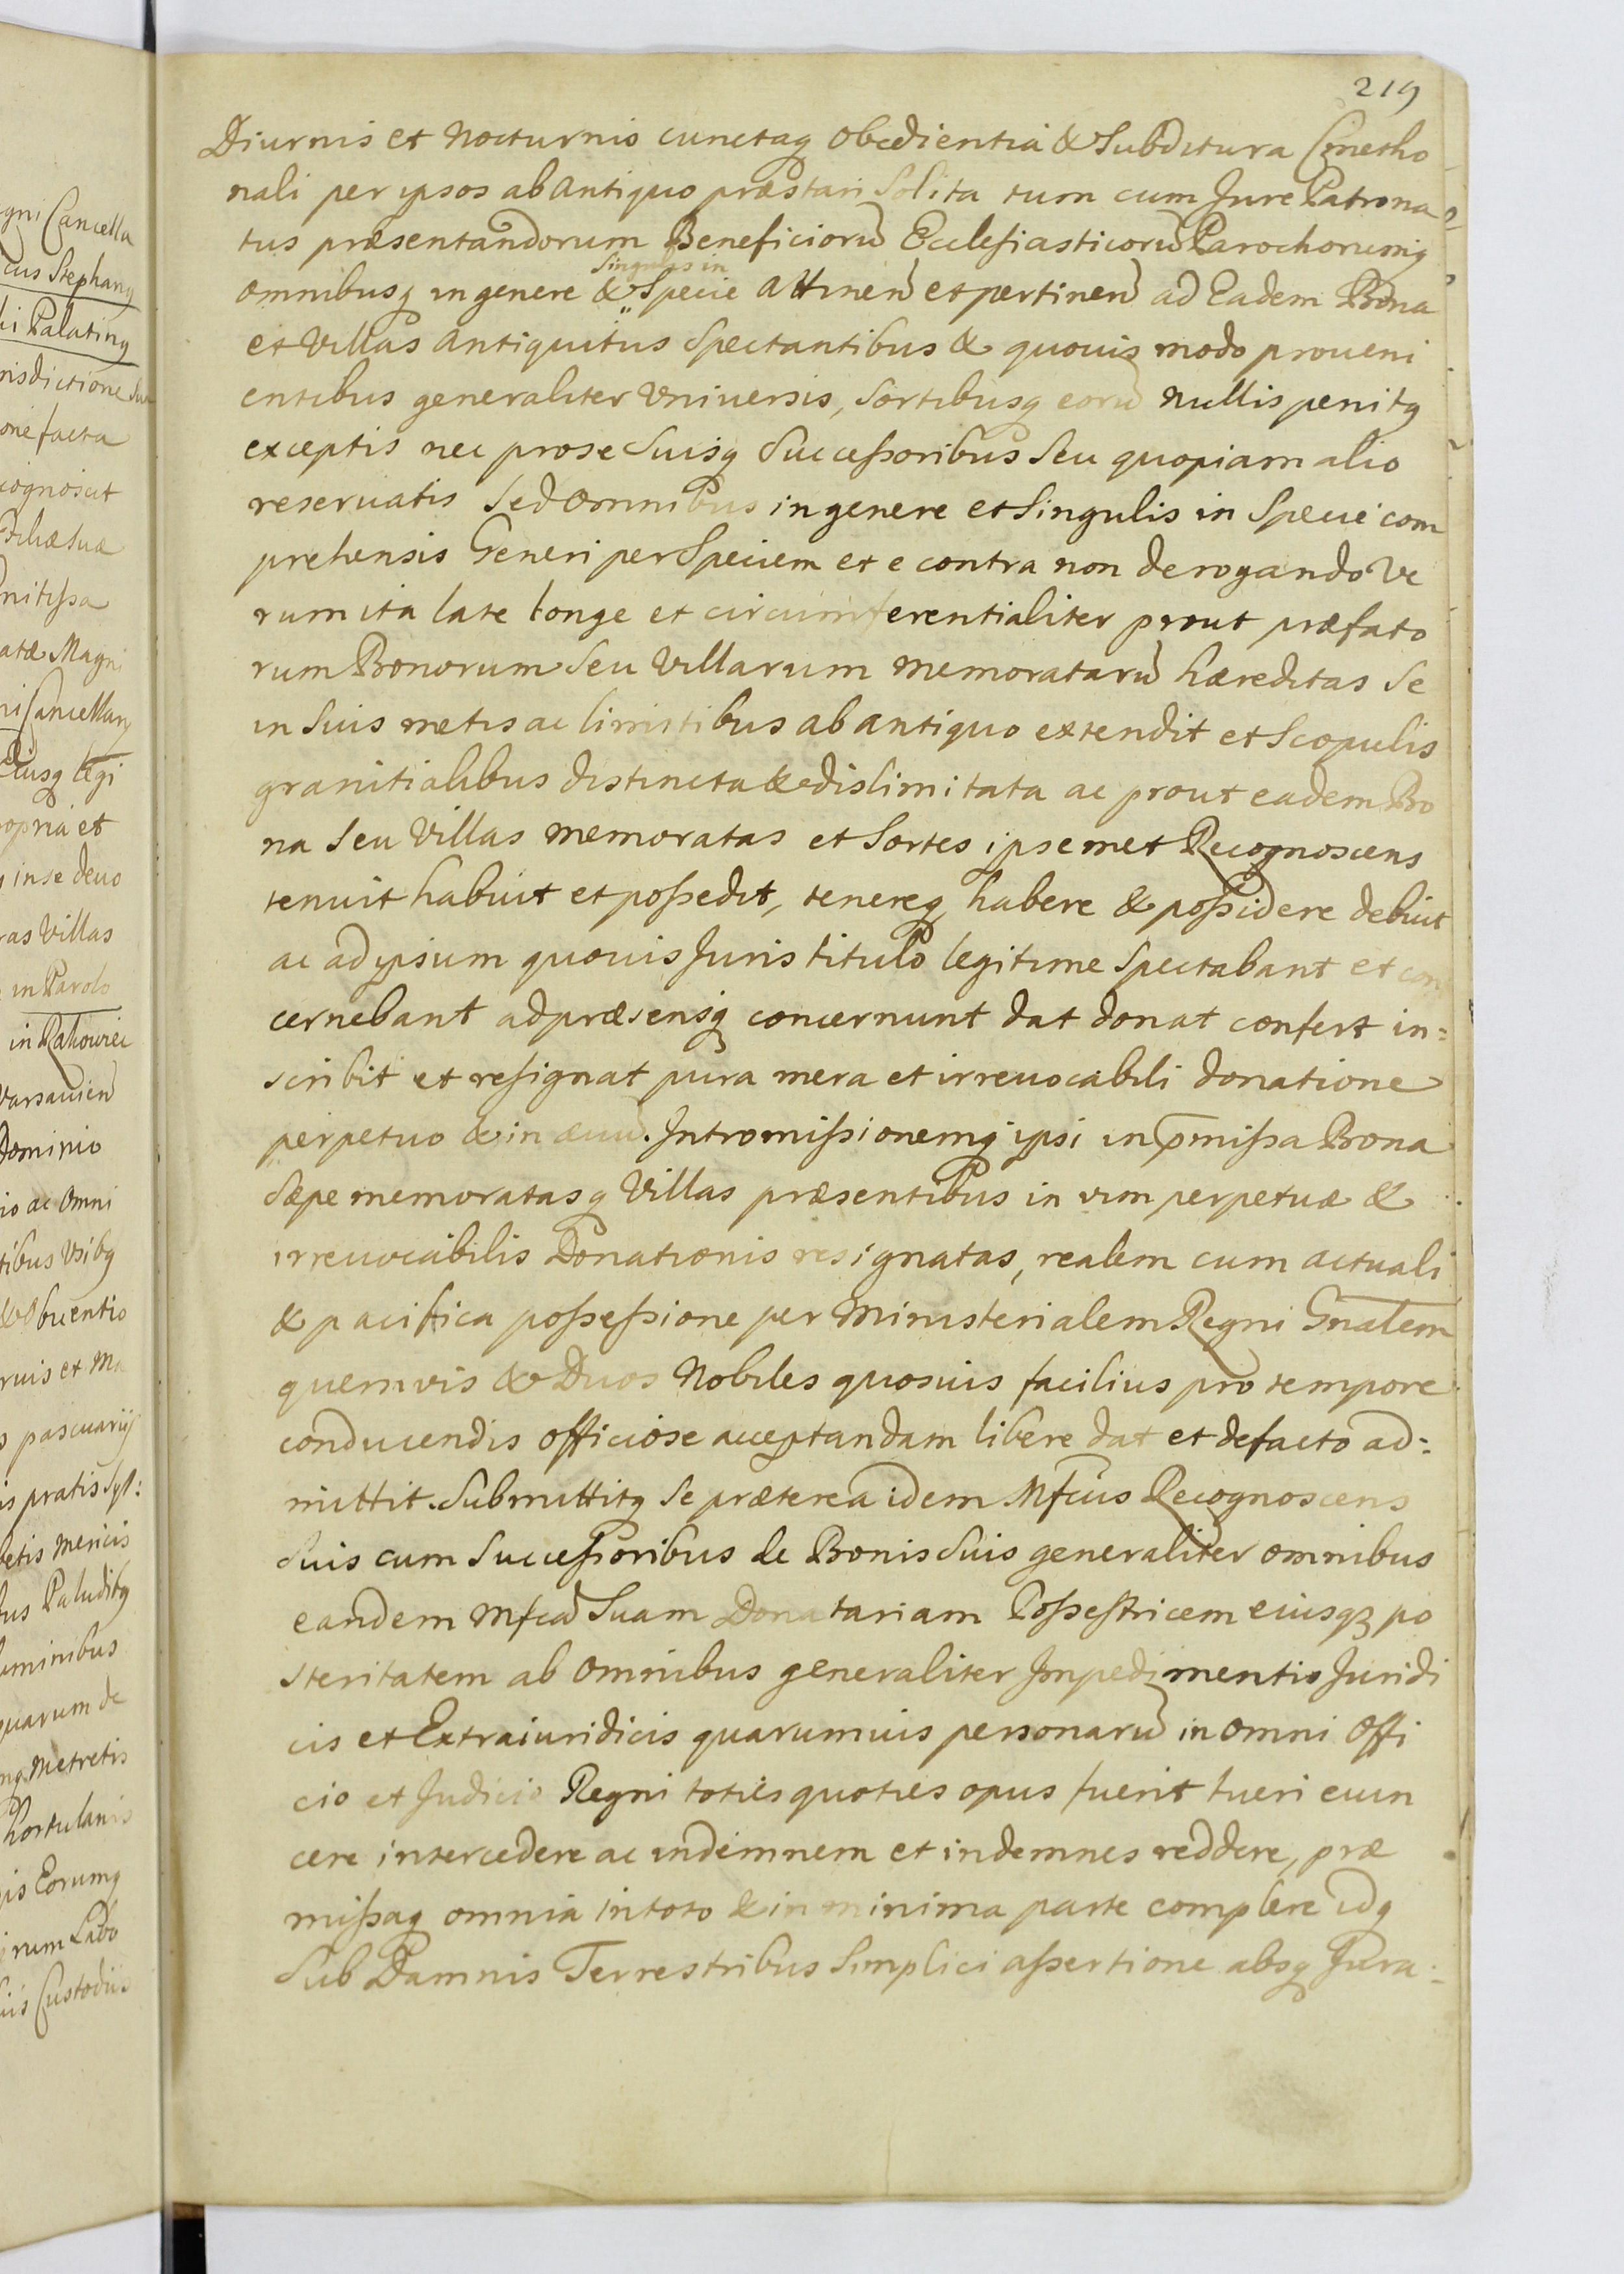 219
Diurnis et Nocturnis cunctaq obedientia & Subditura Cmetho
nali per ipsos ab antiquo præstari Solita tum cum Jure Patrona
tus præsentandorum Beneficiorũ Ecclesiasticorũ Parochorumq
Singulis in
omnibusq in genere & Specie attinen et pertinen ad Eadem Bona
et Villas antiquitus Spectantibus & quouis modo proueni
entibus generaliter Vniuersis, Sortibusq eorũ nullis penitq
exceptis nec pro se Suisq Successoribus Seu quopiam alio
reseruatis Sed omnibus in genere et Singulis in Specie com
prehensis Generi per Speciem et e contra non derogando Ve
rum ita late longe et circumferentialiter prout præfato
rum Bonorum Seu Villarum memoratarũ hæreditas Se
in Suis metis ac limitibus ab antiquo extendit et Scopulis
granitialibus distincta & dislimitata ac prout eadem Bo
na Seu Villas memoratas et Sortes ipsemet Recognoscens
tenuit habuit et possedit, tenereq habere & possidere debuit
ac ad ipsum quouis Juris titulo legitime Spectabant et con
cernebant ad præsensq concernunt dat donat confert in=
scribit et resignat pura mera et irreuocabili donatione
perpetuo & in æuũ. Intromissionemq ipsi in pmissa Bona
Sæpe memoratasq Villas præsentibus in vim perpetuæ &
irreuocabilis Donationis resignatas, realem cum actuali
& pacifica possessione per Ministerialem Regni Gnalem
quemvis & Duos Nobiles quosuis facilius pro tempore
conducendis officiose acceptandam libere dat et defacto ad=
mittit. Submittitq Se præterea idem Mfcus Recognoscens
Suis cum Successoribus de Bonis Suis generaliter omnibus
eandem Mfcã Suam Donatariam Possestricem eiusq po
steritatem ab omnibus generaliter Impedimentis Juridi
cis et Extraiuridicis quarumuis personarũ in omni Offi
cio et Judicio Regni toties quoties opus fuerit tueri euin
cere intercedere ac indemnem et indemnes reddere, præ
missaq omnia in toto & in minima parte complere idq
Sub Damnis Terrestribus Simplici assertione absq Jura=